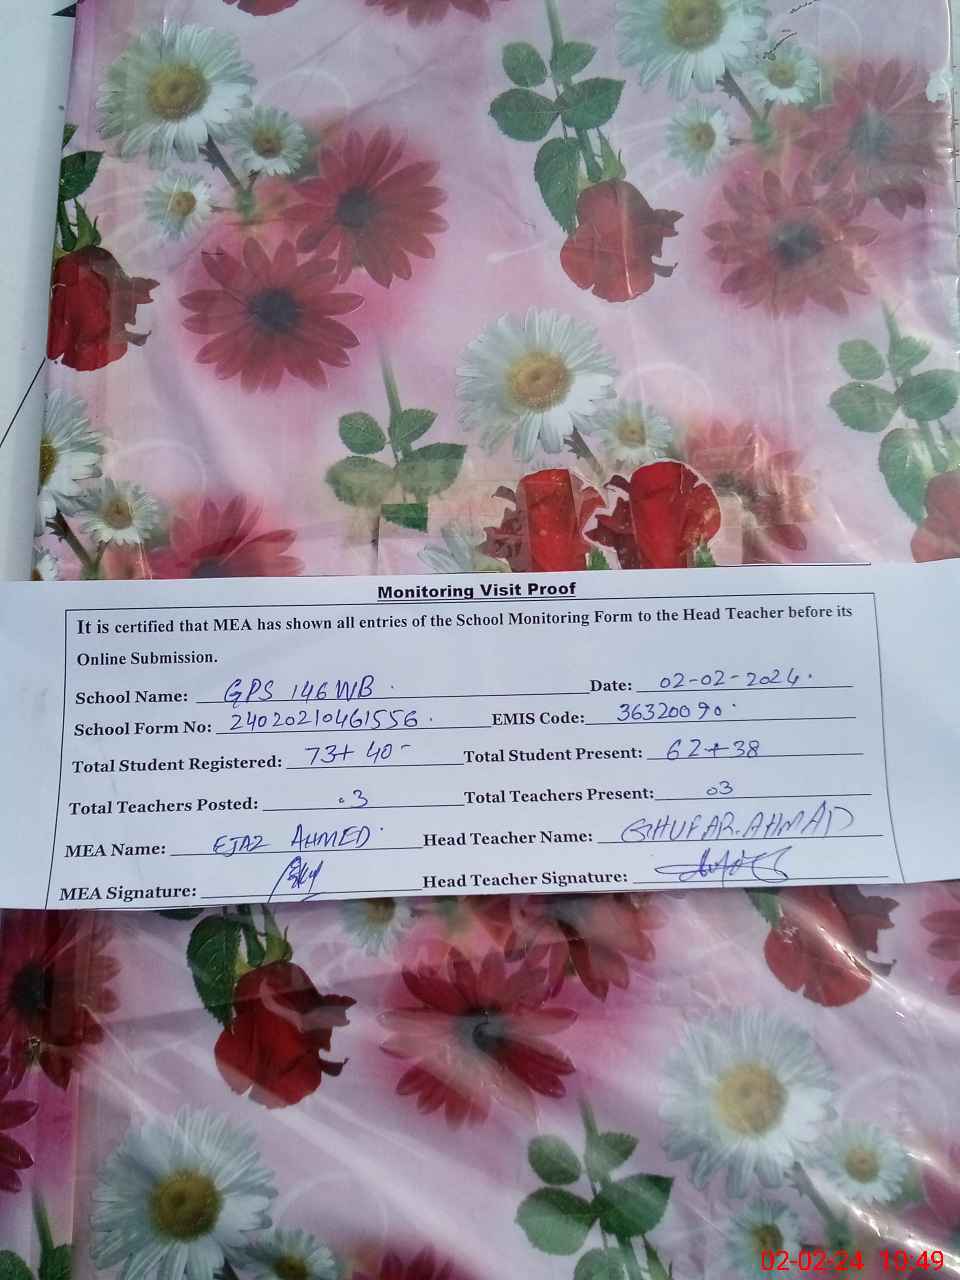 Monitoring Visit Proof
It is certified that MEA has shown all entries of the School Monitoring Form to the Head Teacher before its
Online Submission.
School Name: GPS 146 WB Date: 02-02-2024
School Form No: 24020210461556 EMIS Code: 36320090
Total Student Registered: 73+40 Total Student Present: 62+38
Total Teachers Posted: 03 Total Teachers Present: 03
MEA Name: EJAZ AHMED Head Teacher Name: GHUFAR.AHMAD
MEA Signature: Head Teacher Signature:
02-02-24 10:49